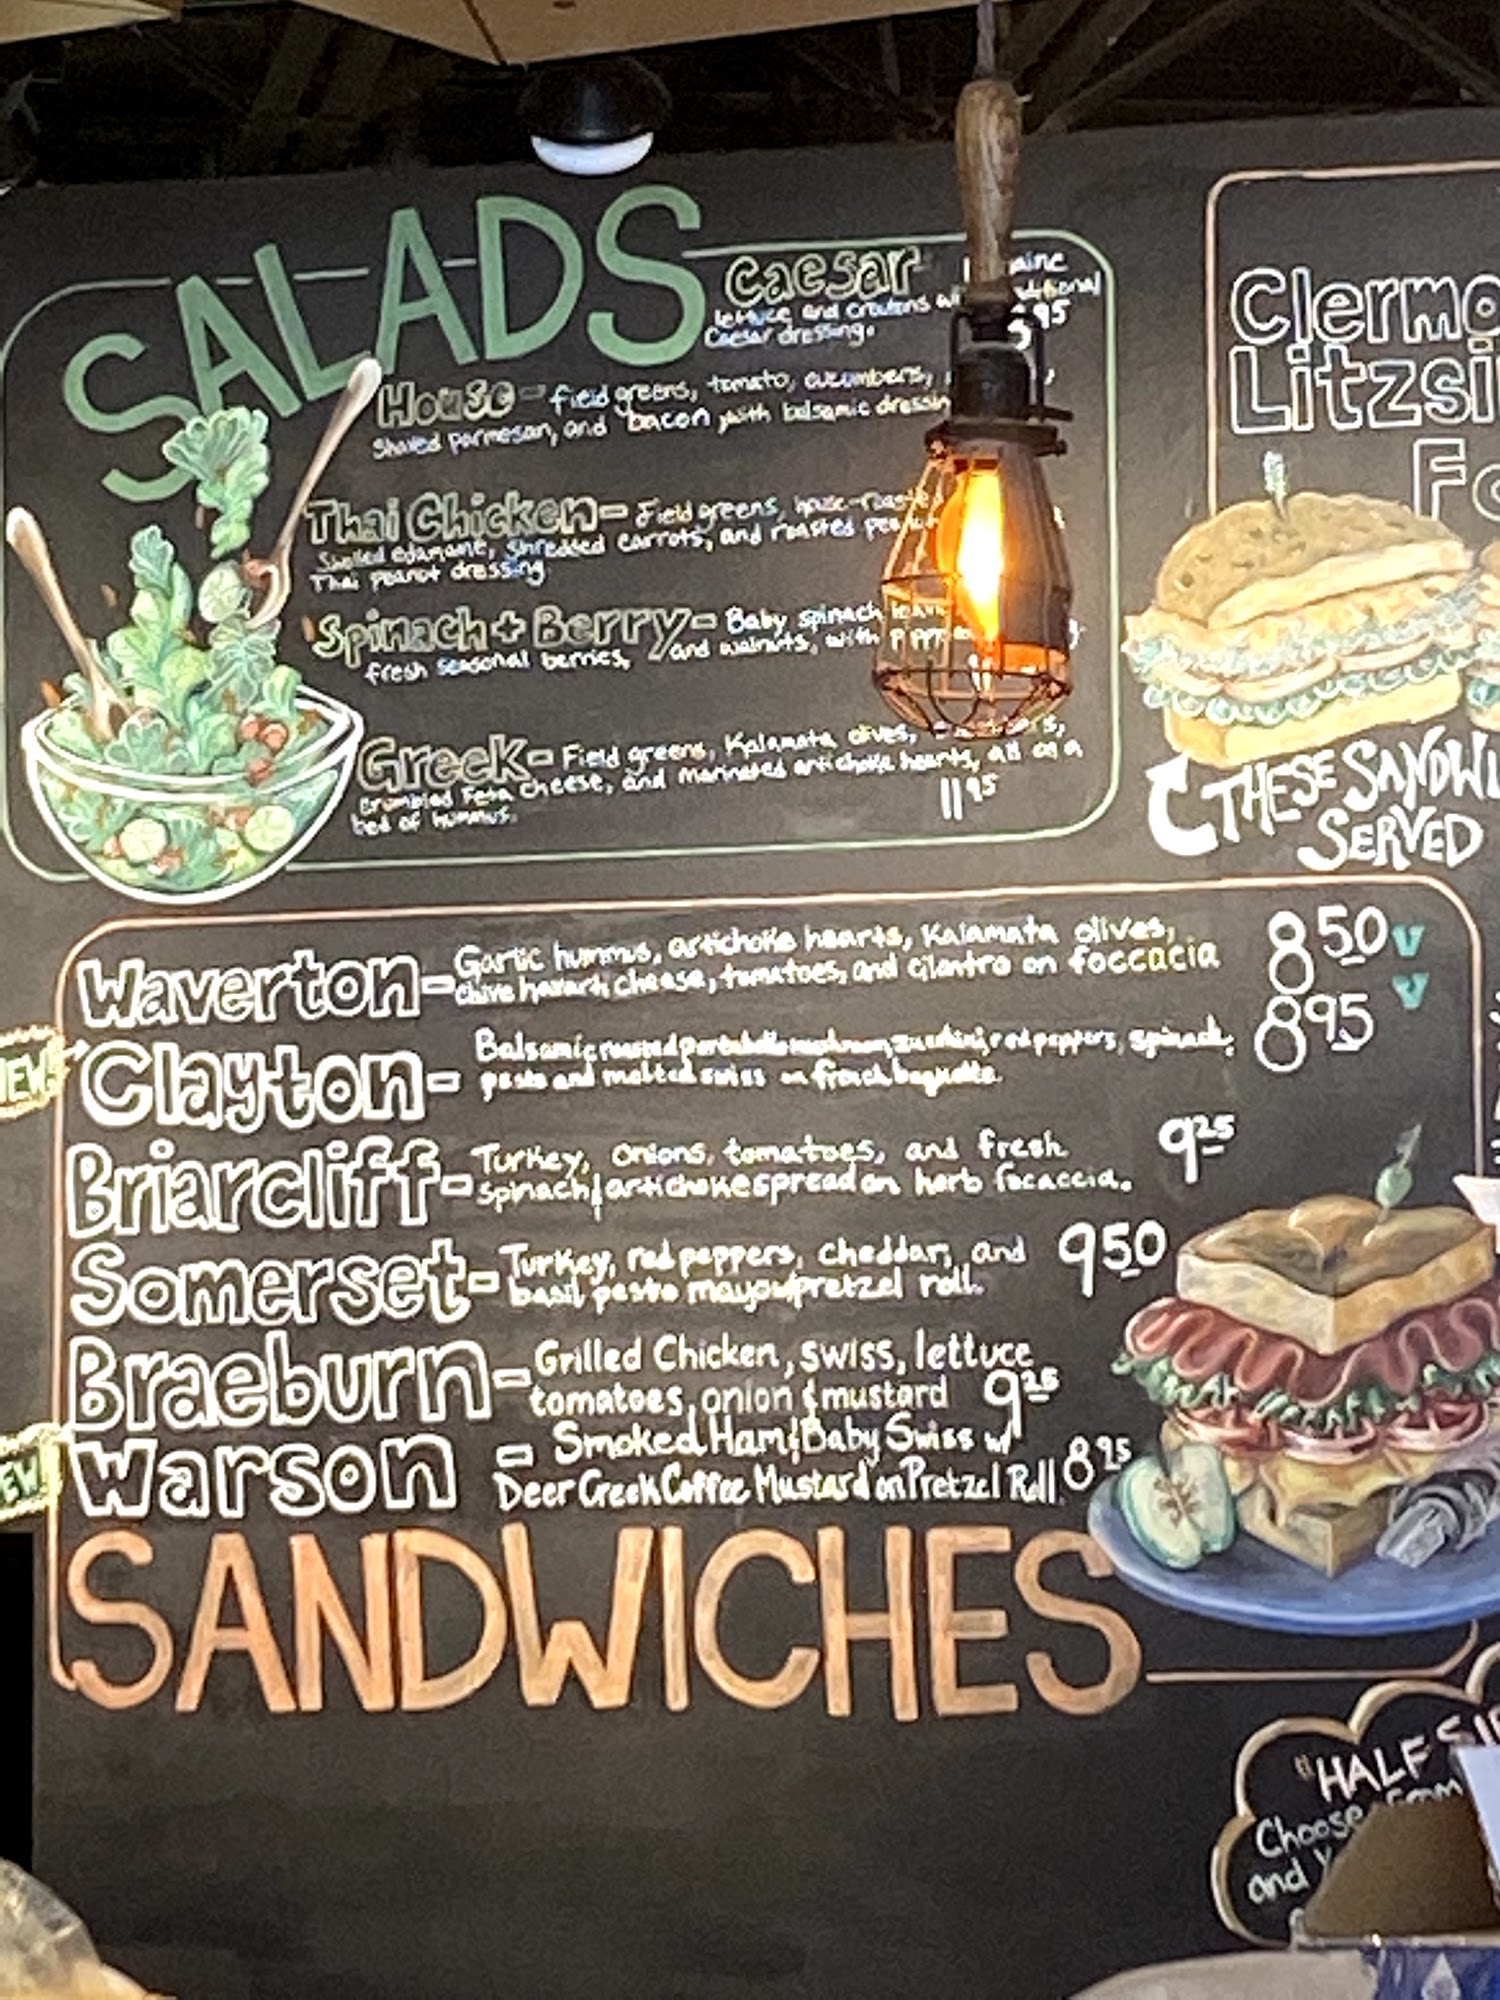 SALADS
Caesar
lettuce and croutons
Caesar dressing.
95
House - field greens, tomato, cucumbers,
Shaved parmesan, and bacon with balsamic
Thai Chicken - Field greens, house-roasted
Shelled edamame, shredded carrots, and roasted
Thai peanut dressing
Spinach + Berry - Baby spinach
fresh seasonal berries, and walnuts, with
Greek - Field greens, Kalamata olives,
crumbled Feta cheese, and marinated artichoke hearts, all on a
bed of hummus.
11 95
Clermo
Litzsi
Fo
THESE SANDWI
SERVED
Waverton - Garlic hummus, artichoke hearts, Kalamata olives,
chive havarti cheese, tomatoes, and cilantro on foccacia
8 50 V
V
NEW!
Clayton - Balsamic roasted portabella mushroom, zucchini, red peppers, spinach,
pesto and melted swiss on french baguette.
8 95
Briarcliff - Turkey, onions, tomatoes, and fresh
spinach & artichoke spread on herb focaccia.
9 25
Somerset - Turkey, red peppers, cheddar, and
basil pesto mayo pretzel roll.
9 50
Braeburn - Grilled Chicken, swiss, lettuce
tomatoes, onion & mustard 9 25
Warson - Smoked Ham & Baby Swiss w/
Deer Creek Coffee Mustard on Pretzel Roll 8 95
SANDWICHES
"HALF
Choose From
and